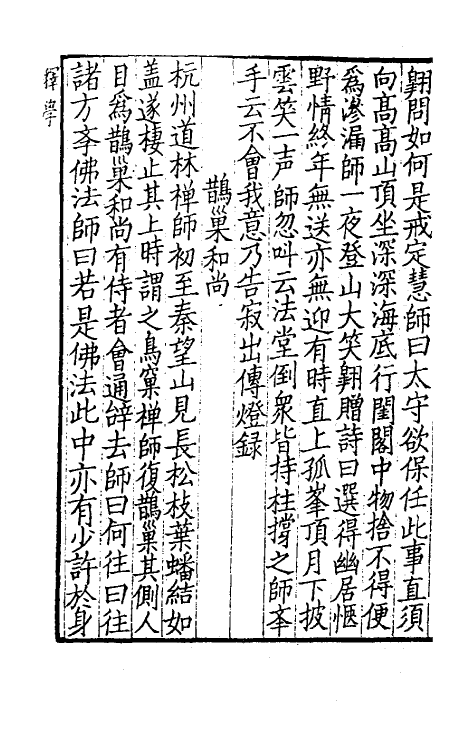 翺問如何是戒定慧師曰太守欲保任此事直須
向髙髙山頂坐深深海底行閨閤中物捨不得便
爲滲漏師一夜登山大笑翺贈詩曰選得幽居愜
野情終年無送亦無迎有時直上孤峯頂月下披
雲笑一声師忽叫云法堂倒衆皆持柱撐之師㪯
手云不會我意乃告寂出傳燈録
鵲巢和尚
杭州道林禅師初至秦望山見長松枝葉蟠結如
盖遂棲止其上時謂之鳥窠禅師復鵲巢其側人
目爲鵲巢和尚有侍者會通辝去師曰何往曰往
諸方斈佛法師曰若是佛法此中亦有少許於身
釋學